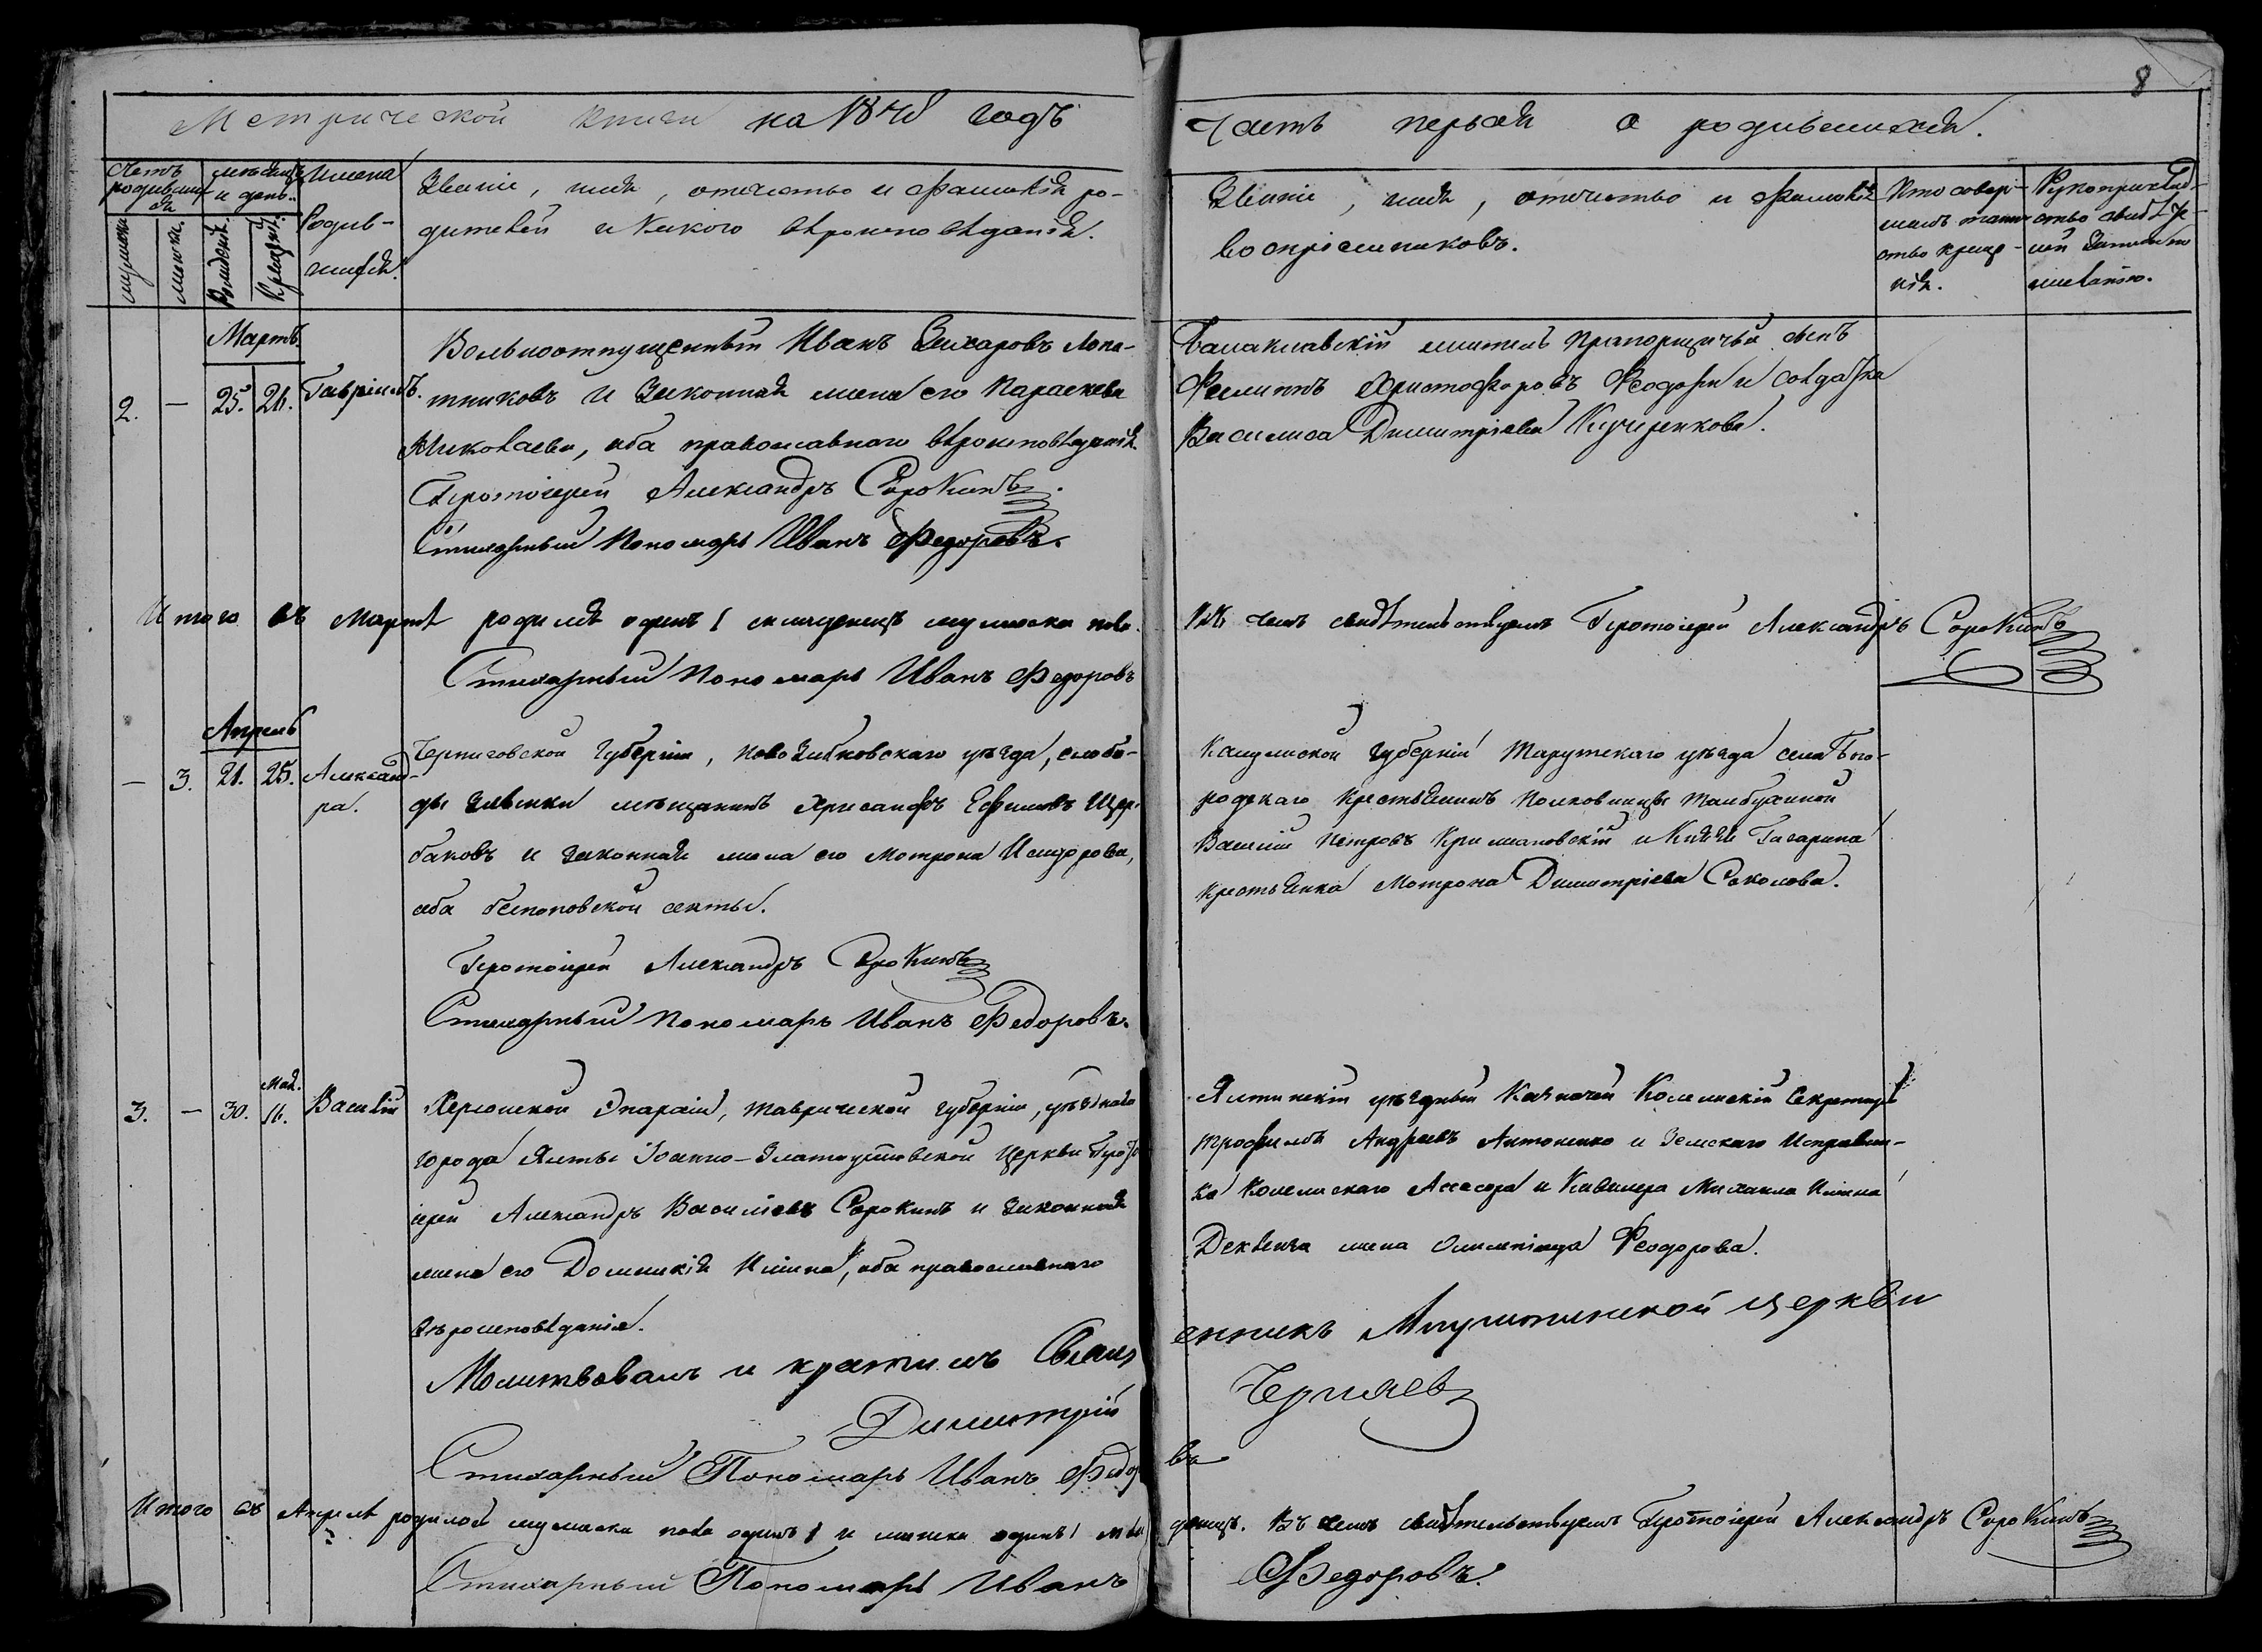 8
Метрической книги на 18 годъ
Часть первая о родившихся.
Счетъ родивших-ся
мужеска.
женска.
мѣсяцъ и день.
Рожденія.
Крещенія.
Имена Родив-шихся.
Званіе, имя, отчество и фамилія ро-
дителей и какого вѣроисповѣданія.
Званіе, имя, отчество и фамилія
воспріемниковъ.
Кто совер-
шалъ таин-
ство креще-
нія.
Рукоприклад-
ство свидѣте-
лей записи по
желанію.
Мартъ.
2. — 25. 26. Гавріилъ.
Вольноотпущенный Иванъ Захаровъ Лопа-
тниковъ и законная жена его Параскева
Николаева, оба православнаго вѣроисповѣданія.
Протоіерей Александръ Сорокинъ.
Стихарный Пономарь Иванъ Федоровъ.
Балаклавскій житель Прапорщичій сынъ
Филиппъ Христофоровъ Феодори и солдатка
Василиса Димитріева Кучеренкова.
Итого въ Мартѣ родился одинъ 1 младенецъ мужеска пола.
Стихарный Пономарь Иванъ Федоровъ
Въ чемъ свидѣтельствуемъ Протоіерей Александръ Сорокинъ
Апрель
— 3. 21. 25. Александ-
ра.
Черниговской Губерніи, Новозыбковскаго уѣзда, слобо-
ды Злынки мѣщанинъ Хрисанфъ Ефимовъ Щер-
баковъ и законная жена его Матрона Исидорова,
оба беспоповской секты.
Протоіерей Александръ Сорокинъ
Стихарный Пономарь Иванъ Федоровъ.
Калужской Губерніи Тарутскаго уѣзда села Бого-
родскаго крестьянинъ Полковницы Тамбухиной
Василій Петровъ и Князя Гагарина
крестьянка Матрона Димитріева Соколова.
3. — 30. Мая. 16. Василій
Херсонской Эпархіи, Таврической Губерніи, уѣзднаго
города Ялты Іоанно-Златоустовской Церкви Прото-
іерей Александръ Василіевъ Сорокинъ и законная
жена его Домникія Ильина, оба православнаго
вѣроисповѣданія.
Молитвовалъ и крестилъ Свящ
Димитрій
Стихарный Пономарь Иванъ Федор
Ялтинскій уѣздный Казначей Коллежскій Секретарь
Трофимъ Андреевъ Антоненко и Земскаго Исправни-
ка Коллежскаго Ассесора и Кавалера Михаила Ильина
жена Олимпіада Феодорова.
енникъ церкви
Черняев
въ
Итого въ Апрелѣ родилось мужеска пола одинъ 1 и женска одинъ 1 мла
денецъ. Въ чемъ свидѣтельствуемъ Протоіерей Александръ Сорокинъ
Стихарный Пономарь Иванъ
Федоровъ.